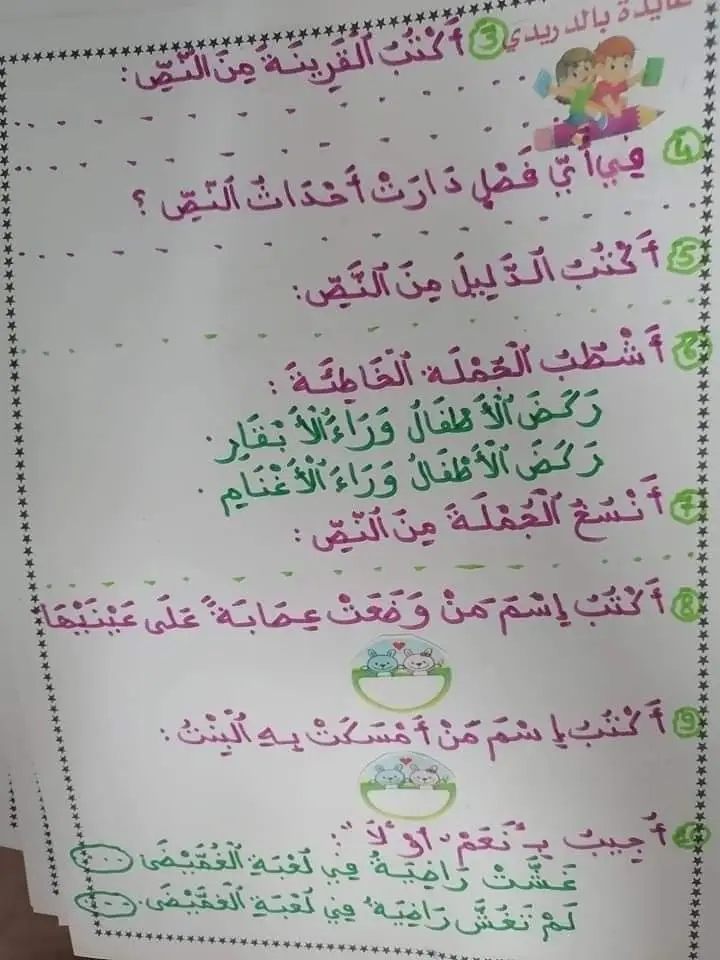 عايدة بالدريدي
3 أَكْتُبُ الْقَرِينَةَ مِنَ النَّصِّ :
4 فِي أَيِّ فَصْلٍ دَارَتْ أَحْدَاثُ النَّصِّ ؟
5 أَكْتُبُ الدَّلِيلَ مِنَ النَّصِّ:
6 أَشْطُبُ الْجُمْلَةَ الْخَاطِئَةَ :
رَكَضَ الْأَطْفَالُ وَرَاءَ الْأَبْقَارِ.
رَكَضَ الْأَطْفَالُ وَرَاءَ الْأَغْنَامِ.
7 أَنْسَخُ الْجُمْلَةَ مِنَ النَّصِّ :
8 أَكْتُبُ إِسْمَ مَنْ وَضَعَتْ عِصَابَةً عَلَى عَيْنَيْهَا
9 أَكْتُبُ إِسْمَ مَنْ أَمْسَكَتْ بِهِ الْبِنْتُ :
10 أُجِيبُ بِـ "نَعَمْ" أَوْ "لَا" :
غَشَّتْ رَاضِيَةُ فِي لُعْبَةِ الْغُمَّيْضَى ...
لَمْ تَغُشَّ رَاضِيَةُ فِي لُعْبَةِ الْغُمَّيْضَى. ...